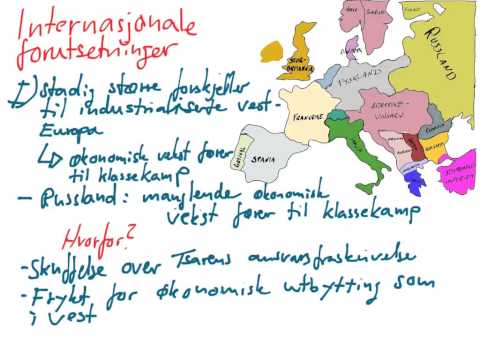 Internasjonale
forutsetninger
1) stadig større forskjeller
til industrialiserte vest-
Europa
↳ økonomisk vekst fører
til klassekamp
- Russland: manglende økonomisk
vekst fører til klassekamp
Hvorfor?
- Skuffelse over Tsarens ansvarsfraskrivelse
- Frykt for økonomisk utbytting som
i vest
STOR-
BRITANNIA
NORGE
SVERIGE
DANMARK
RUSSLAND
TYSKLAND
FRANKRIKE
ØSTERRIKE-
UNGARN
PORTUGAL
SPANIA
ITALIA